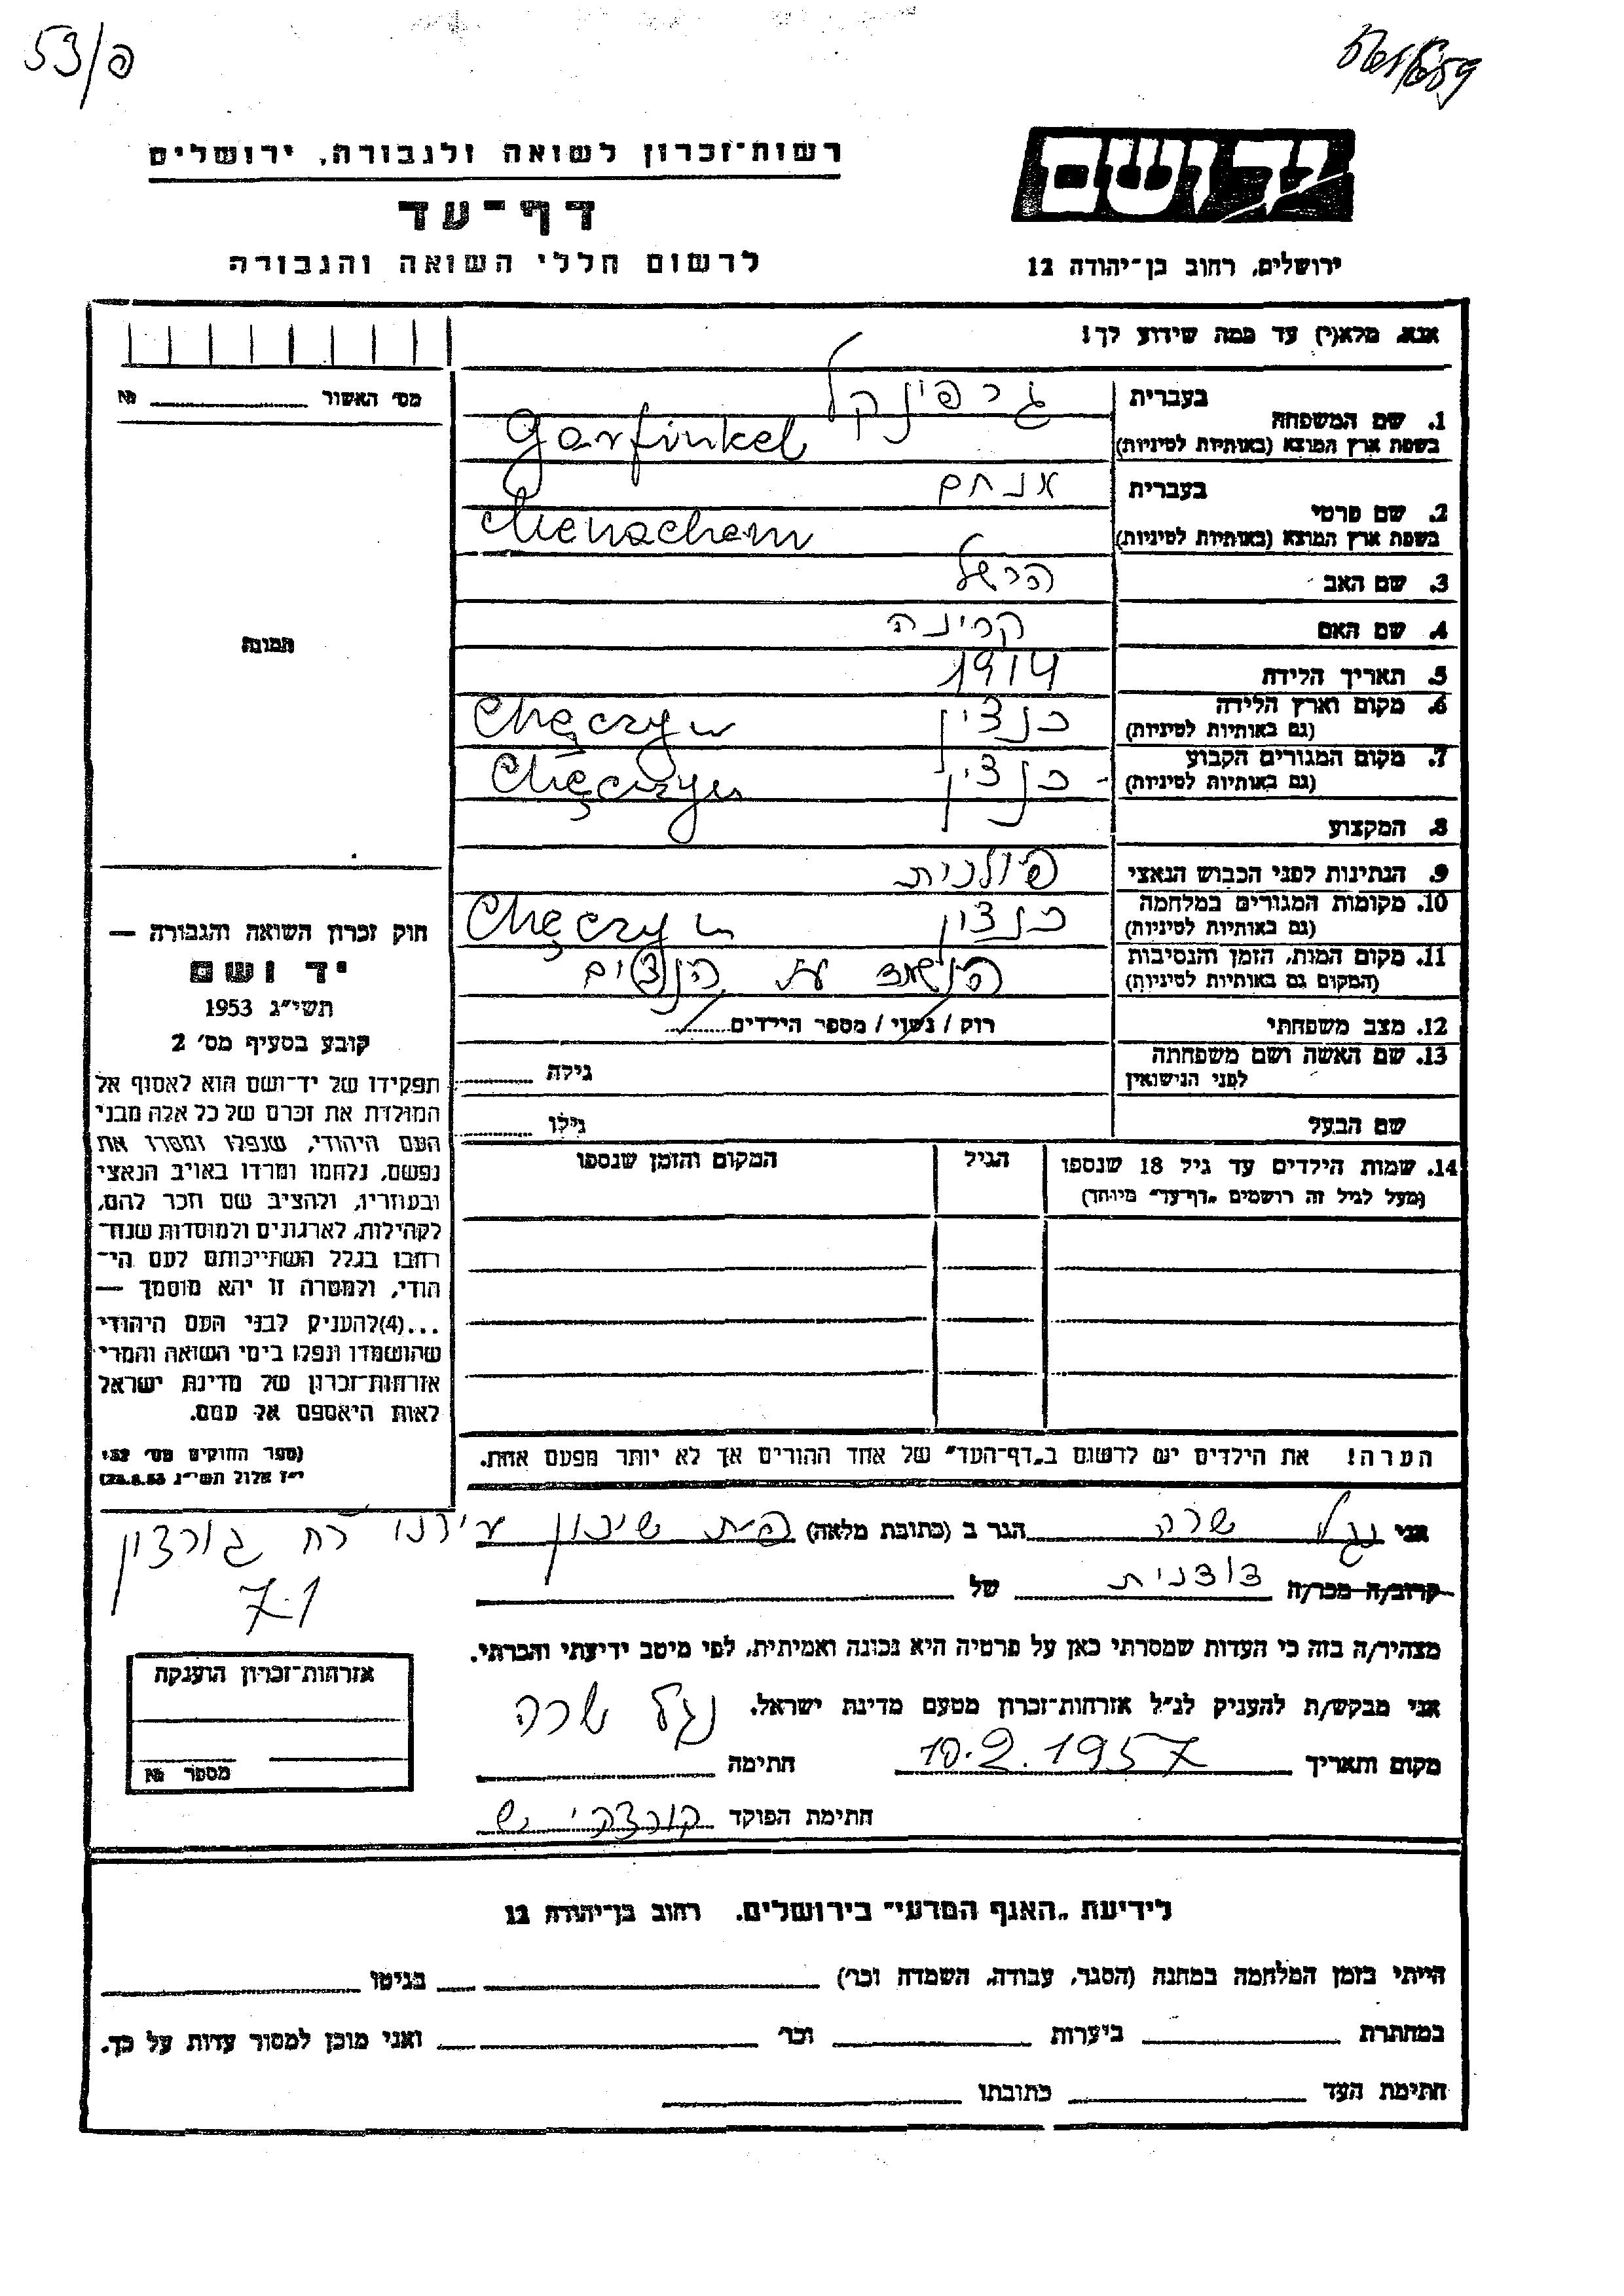 53/פ
רשות־זכרון לשואה ולגבורה, ירושלים
יד ושם
דף־עד
לרשום חללי השואה והגבורה
ירושלים, רחוב בן־יהודה 12
אנא, מלא(י) עד כמה שידוע לך!
מס׳ האשור № ______
1. שם המשפחה
בעברית גרפינקל
בשפת ארץ המוצא (באותיות לטיניות) Garfinkel
2. שם פרטי
בעברית מנחם
בשפת ארץ המוצא (באותיות לטיניות) Menachem
3. שם האב הרשל
4. שם האם
5. תאריך הלידה 1914
6. מקום וארץ הלידה
(גם באותיות לטיניות) כנצין Chęczyn
7. מקום המגורים הקבוע
(גם באותיות לטיניות) כנצין Chęczyn
8. המקצוע
9. הנתינות לפני הכבוש הנאצי פולנית
10. מקומות המגורים במלחמה
(גם באותיות לטיניות) כנצין Chęczyn
11. מקום המות, הזמן והנסיבות
(המקום גם באותיות לטיניות)
12. מצב משפחתי רוק / נשוי / מספר הילדים
13. שם האשה ושם משפחתה
לפני הנישואין גילה
שם הבעל גילו
14. שמות הילדים עד גיל 18 שנספו הגיל המקום והזמן שנספו
(מעל לגיל זה רושמים „דף־עד״ מיוחד)
הערה! את הילדים יש לרשום ב„דף־העד״ של אחד ההורים אך לא יותר מפעם אחת.
תמונה
חוק זכרון השואה והגבורה —
יד ושם
תשי״ג 1953
קובע בסעיף מס׳ 2
תפקידו של יד־ושם הוא לאסוף אל
המולדת את זכרם של כל אלה מבני
העם היהודי, שנפלו ומסרו את
נפשם, נלחמו ומרדו באויב הנאצי
ובעוזריו, ולהציב שם וזכר להם,
לקהילות, לארגונים ולמוסדות שנח־
רבו בגלל השתייכותם לעם הי־
הודי, ולמטרה זו יהא מוסמך —
...(4)להעניק לבני העם היהודי
שהושמדו ונפלו בימי השואה והמרי
אזרחות־זכרון של מדינת ישראל
לאות היאספם אל עמם.
(ספר החוקים מס׳ 132,
י״ז אלול תשי״ג 28.8.53)
אני נגל שרה הגר ב (כתובת מלאה) שיכון עירנו רח גורדון
7.1
קרוב/ה מכר/ה של
מצהיר/ה בזה כי העדות שמסרתי כאן על פרטיה היא נכונה ואמיתית, לפי מיטב ידיעתי והכרתי.
אני מבקש/ת להעניק לנ״ל אזרחות־זכרון מטעם מדינת ישראל.
מקום ותאריך 10.2.1957 חתימה נגל שרה
חתימת הפוקד
אזרחות־זכרון הוענקה
מספר №
לידיעת „האגף המדעי״ בירושלים, רחוב בן־יהודה 12
הייתי בזמן המלחמה במחנה (הסגר, עבודה, השמדה וכר׳) ______ בגיטו ______
במחתרת ______ ביערות ______ וכר׳ ______ ואני מוכן למסור עדות על כך.
חתימת העד ______ כתובתו ______